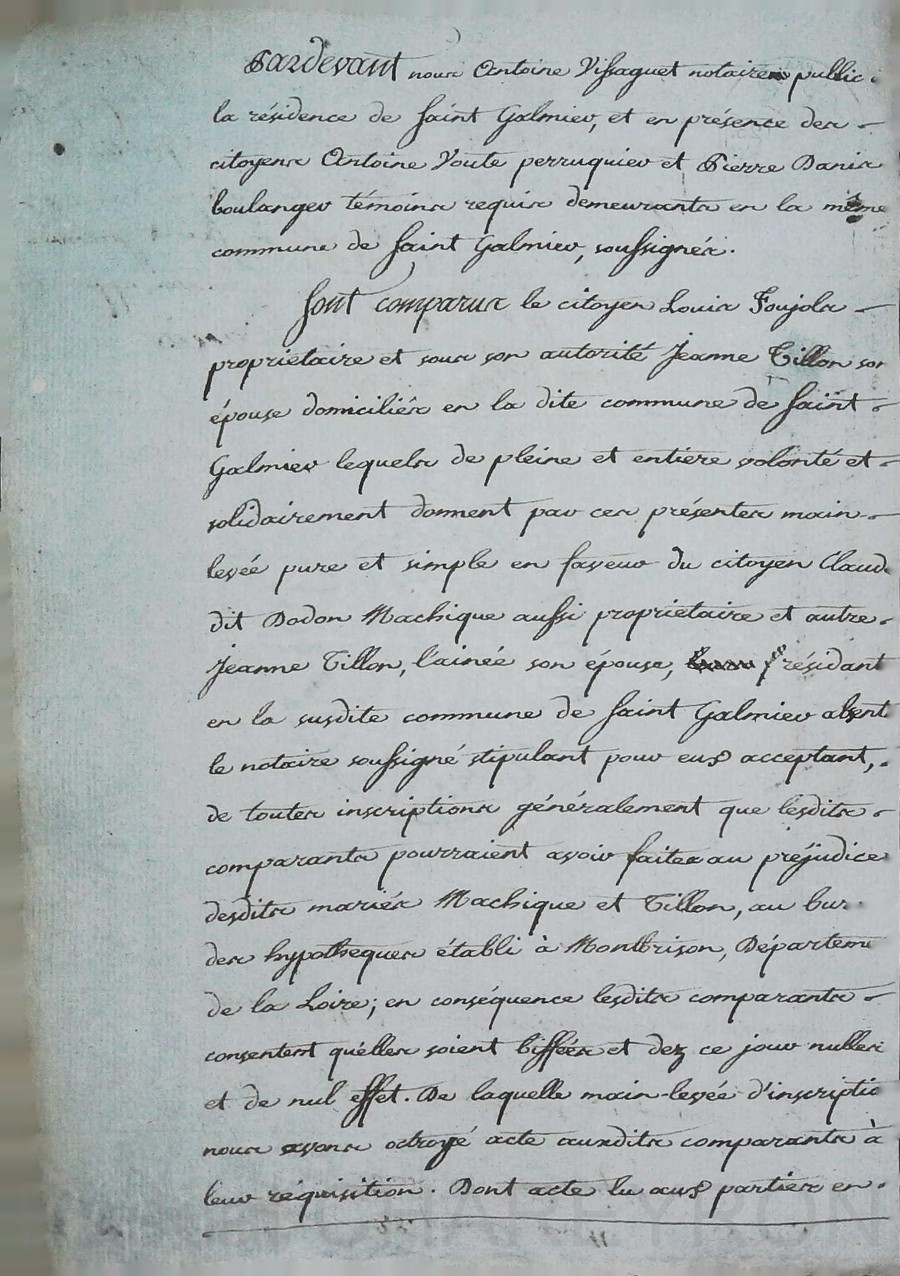 Pardevant nous Antoine Vissaguet notaire public
la résidence de Saint Galmier, et en présence des
citoyens Antoine Voute perruquier et Pierre Danis
boulanger témoins requis demeurants en la même
commune de Saint Galmier, soussignés.
Sont comparus le citoyen Louis Foujols
proprietaire et sous son autorité Jeanne Tillon son
épouse domiciliés en la dite commune de Saint
Galmier lequels de pleine et entiere volonté et
solidairement donnent par ces présentes main-
levée pure et simple en faveur du citoyen Claude
dit Dodon Machique aussi proprietaire et autre
Jeanne Tillon, l'ainée son épouse, résidant
en la susdite commune de Saint Galmier absent
le notaire soussigné stipulant pour eux acceptant,
de toutes inscriptions généralement que lesdits
comparants pourraient avoir faites au préjudice
desdits mariés Machique et Tillon, au bur
des hypotheques établi à Montbrison, Départem
de la Loire; en conséquence lesdits comparants
consentent qu'elles soient biffées et dez ce jour nulles
et de nul effet. De laquelle main-levée d'inscriptio
nous avons octroyé acte auxdits comparants à
leur réquisition. Dont acte lu aux parties en
CHAREYRON